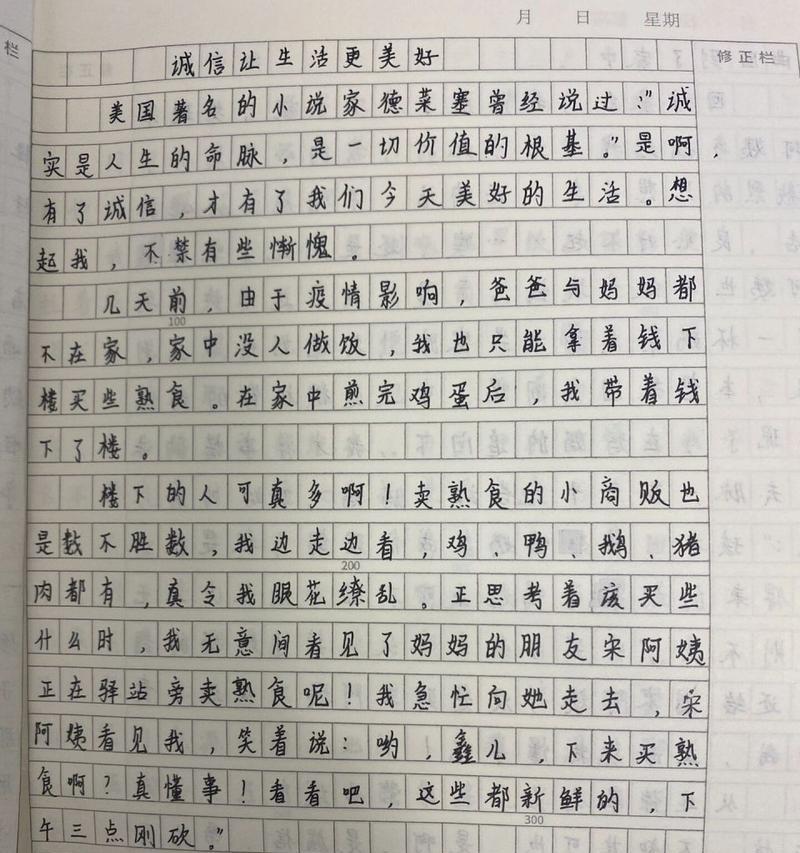 月 日 星期
栏
修正栏
诚信让生活更美好
美国著名的小说家德莱塞曾经说过:"诚
实是人生的命脉,是一切价值的根基。"是啊,
有了诚信,才有了我们今天美好的生活。想
起我,不禁有些惭愧。
几天前,由于疫情影响,爸爸与妈妈都
100
不在家,家中没人做饭,我也只能拿着钱下
楼买些熟食。在家中煎完鸡蛋后,我带着钱
下了楼。
楼下的人可真多啊!卖熟食的小商贩也
是数不胜数,我边走边看,鸡、鸭、鹅、猪
200
肉都有,真令我眼花缭乱。正思考着该买些
什么时,我无意间看见了妈妈的朋友宋阿姨
正在驿站旁卖熟食呢!我急忙向她走去,宋
阿姨看见我,笑着说:哟,鑫儿,下来买熟
食啊?真懂事!看看吧,这些都新鲜的,下
300
午三点刚砍。"